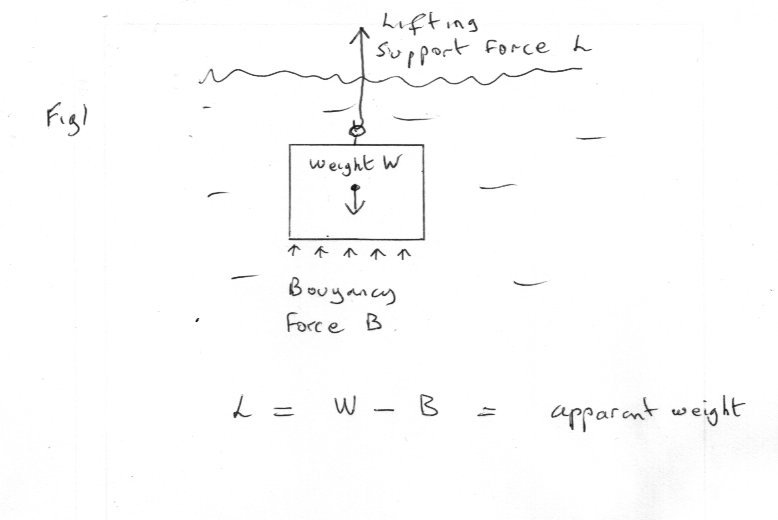 Lifting
Support Force L
Fig1
Weight W
Bouyancy
Force B
L = W - B = apparant weight